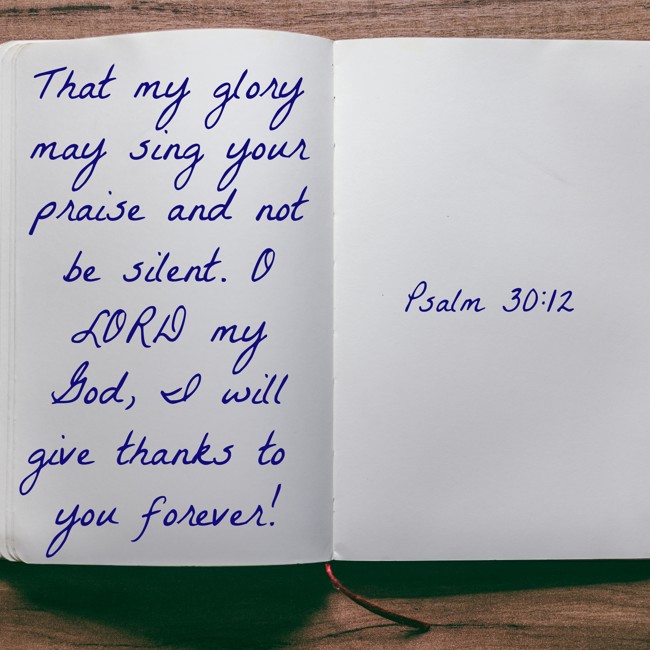 That my glory
may sing your
praise and not
be silent. O
LORD my
God, I will
give thanks to
you forever!
Psalm 30:12